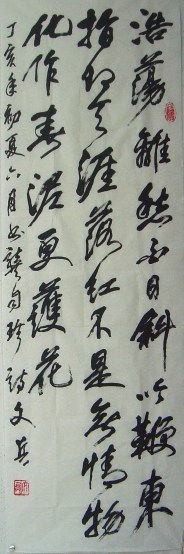 浩蕩離愁白日斜吟鞭東
指即天涯落紅不是無情物
化作春泥更護花
丁亥年初夏六月書龔自珍詩文